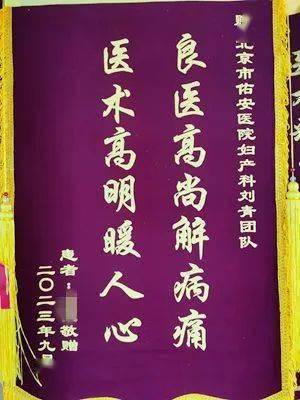 赠 北京市佑安医院妇产科刘青团队
良医高尚解病痛
医术高明暖人心
患者： 敬赠
二〇二三年九月